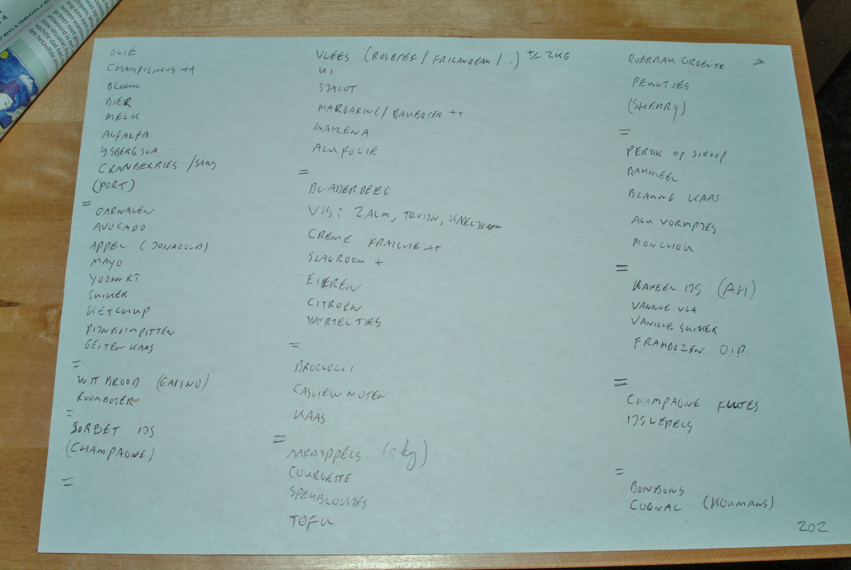 OLIE
CHAMPIGNONS ++
BLOEM
BIER
MELK
ALFALFA
YSBERGSLA
CRANBERRIES / SAUS
(PORT)
=
GARNALEN
AVOCADO
APPEL (JONAGOLD)
MAYO
YOGHURT
SUIKER
KETCHUP
PIJNBOOMPITTEN
GEITEN KAAS
=
WIT BROOD (CASINO)
ROOMBOTER
=
SORBET IJS
(CHAMPAGNE)
=
VLEES (ROSBIEF / FRICANDEAU / ..) +/- 2KG
UI
SJALOT
MARGARINE / BAKBOTER ++
MAIZENA
ALUFOLIE
=
BLADERDEEG
VIS: ZALM, TONIJN, KABELJOUW
CREME FRAICHE ++
SLAGROOM +
EIEREN
CITROEN
WORTELTJES
=
BROCCOLI
CASHEWNOTEN
KAAS
=
AARDAPPELS
COURGETTE
SPEKBLOKJES
TOFU
ROERBAK GROENTE >
PEULTJES
(SHERRY)
=
PERZIK OP SIROOP
BAKMEEL
BLAUWE KAAS
ALU VORMPJES
MONCHOU
=
KANEEL IJS (AH)
VANILLE VLA
VANILLE SUIKER
FRAMBOZEN O.I.D.
=
CHAMPAGNE FLUTES
IJSLEPELS
=
BONBONS
COGNAC (KOUMANS)
202